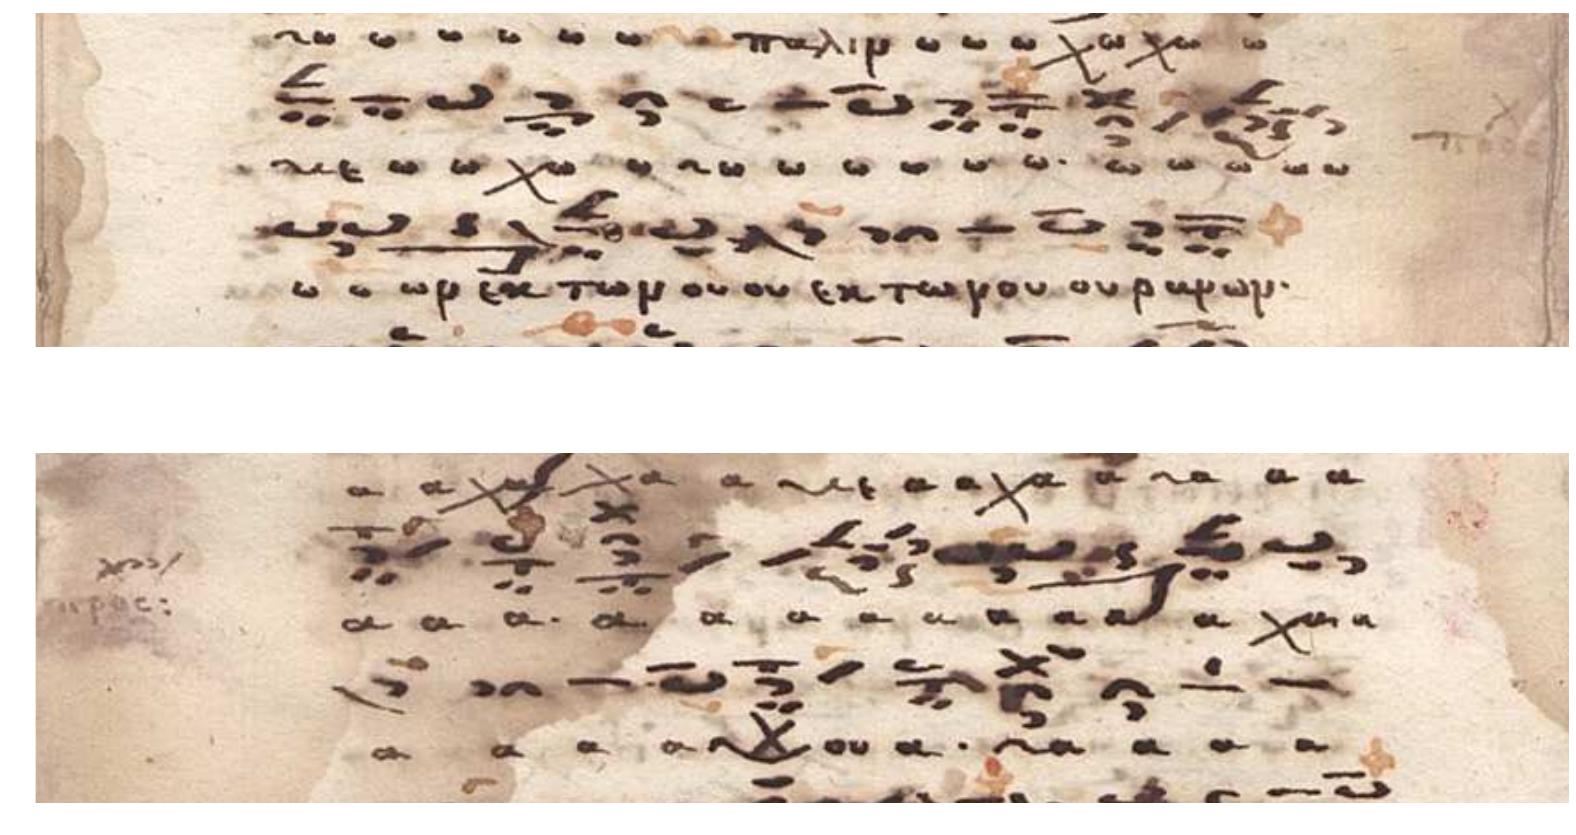 νω ω ω ω ω ω παλιν ω ω ω χω χω ω
νε ω ω χω ω νω ω ω ω ω ω· ω ω ω ω ω
ω ω ων εκ των ου ου εκ των ου ουρανων·
α α χα χα α νε α α χα α να α α
προς:
α α α· α α α α α α α α α χα α
α α α α χου α· να α α α